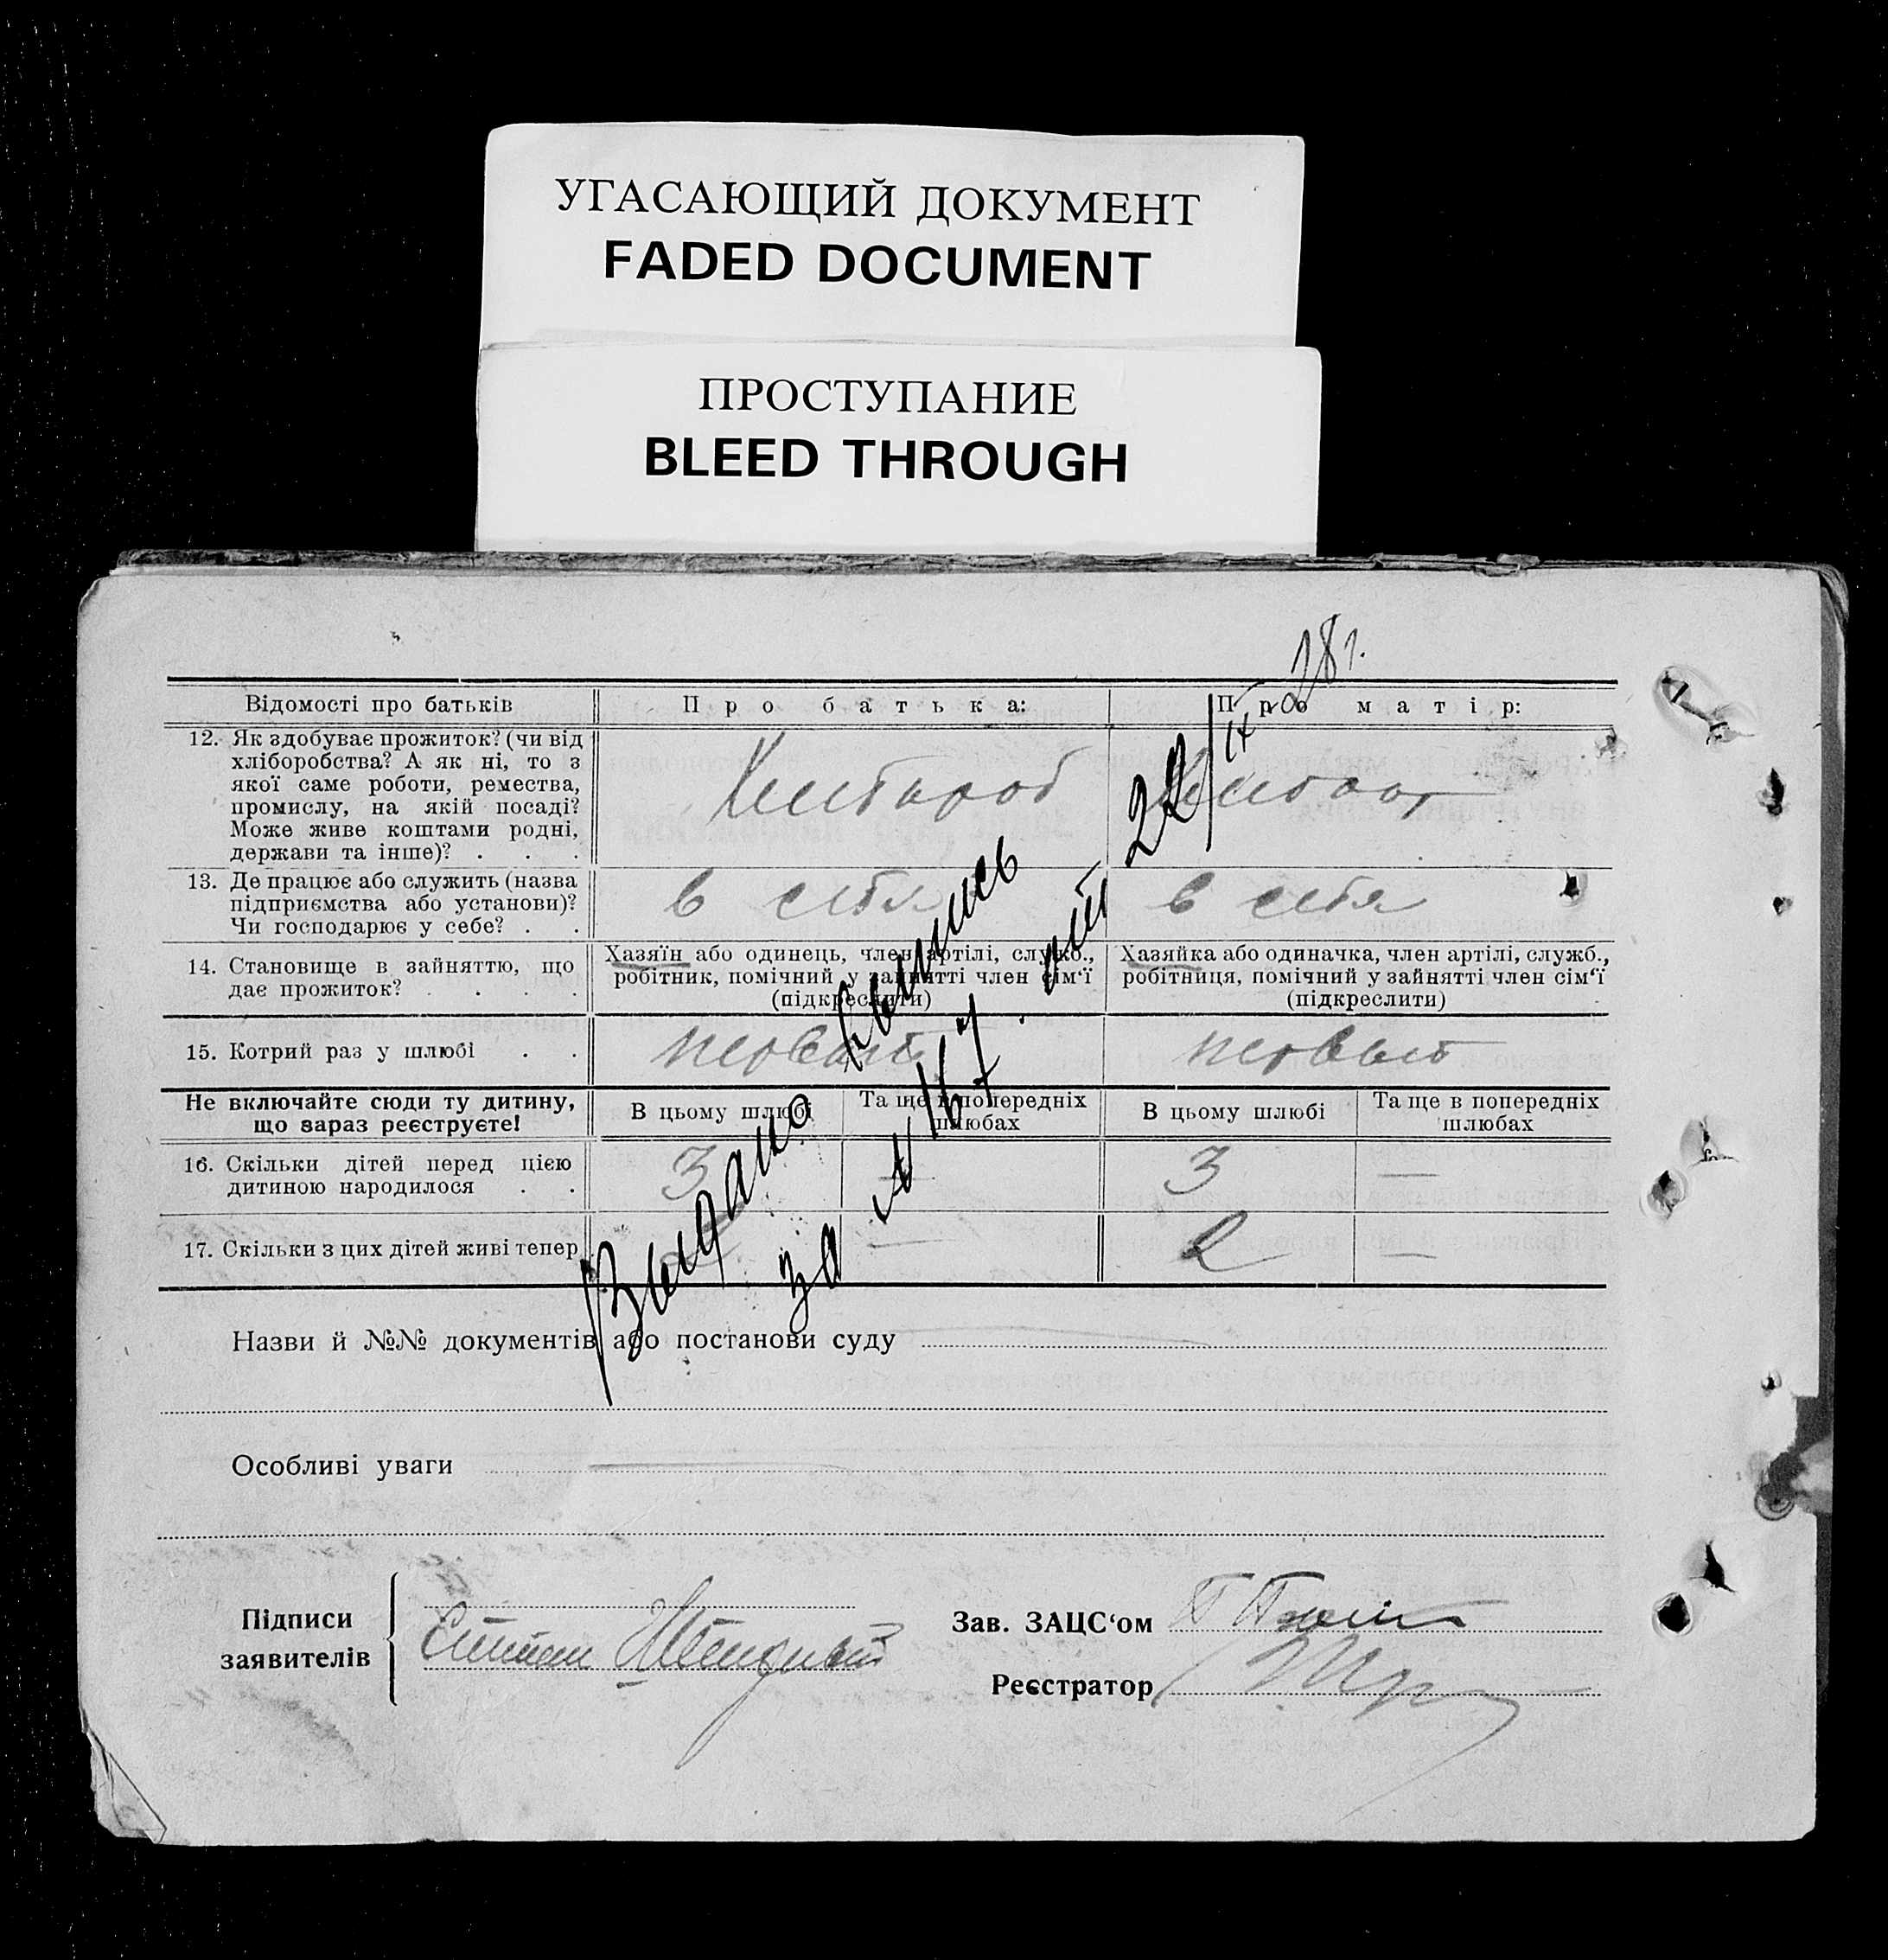 УГАСАЮЩИЙ ДОКУМЕНТ
FADED DOCUMENT
ПРОСТУПАНИЕ
BLEED THROUGH
28 г.
Відомості про батьків
Про батька:
Про матір:
12. Як здобуває прожиток? (чи від
хліборобства? А як ні, то з
якої саме роботи, ремества,
промислу, на якій посаді?
Може живе коштами родні,
держави та інше)? . . .
22/IX
13. Де працює або служить (назва
підприємства або установи)?
Чи господарює у себе? . .
в себя
в себя
14. Становище в зайняттю, що
дає прожиток? . . . .
Хазяїн або одинець, член артілі, служб.,
робітник, помічний у зайнятті член сім'ї
(підкреслити)
Хазяйка або одиначка, член артілі, служб.,
робітниця, помічний у зайнятті член сім'ї
(підкреслити)
15. Котрий раз у шлюбі . .
первый
первый
Не включайте сюди ту дитину,
що зараз реєструєте!
В цьому шлюбі
Та ще в попередніх
шлюбах
В цьому шлюбі
Та ще в попередніх
шлюбах
16. Скільки дітей перед цією
дитиною народилося . .
3
—
3
—
17. Скільки з цих дітей живі тепер
2
—
2
—
Выдано выпись
за № 167 от
Назви й №№ документів або постанови суду
Особливі уваги
Підписи
заявителів
Степан
Зав. ЗАЦС'ом
Реєстратор